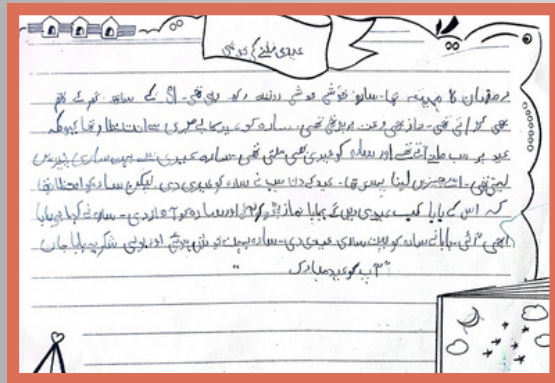 عیدی ملنے کی خوشی
رمضان کا مہینہ تھا۔ سارہ خوشی خوشی روزے رکھ رہی تھی۔ اس کے ساتھ گھر کے کام
بھی کراتی تھی۔ نماز بھی وقت پر پڑھتی تھی۔ سارہ کو عید کا بے صبری سے انتظار تھا کیونکہ
عید پر سب ملنے آتے تھے اور سارہ کو عیدی بھی ملتی تھی۔ سارہ عیدی سے بہت ساری چیزیں
لیتی تھی۔ اسے چیزیں لینا پسند تھا۔ عید کے دن سب نے سارہ کو عیدی دی لیکن سارہ کو انتظار تھا
کہ اس کے بابا کب عیدی دیں گے بابا نماز پڑھ کر آئے اور سارہ کو آواز دی۔ سارہ نے کہا جی بابا
ابھی آئی۔ بابا نے سارہ کو بہت ساری عیدی دی۔ سارہ بہت خوش ہوئی اور بولی شکریہ بابا جان
"آپ کو عید مبارک"